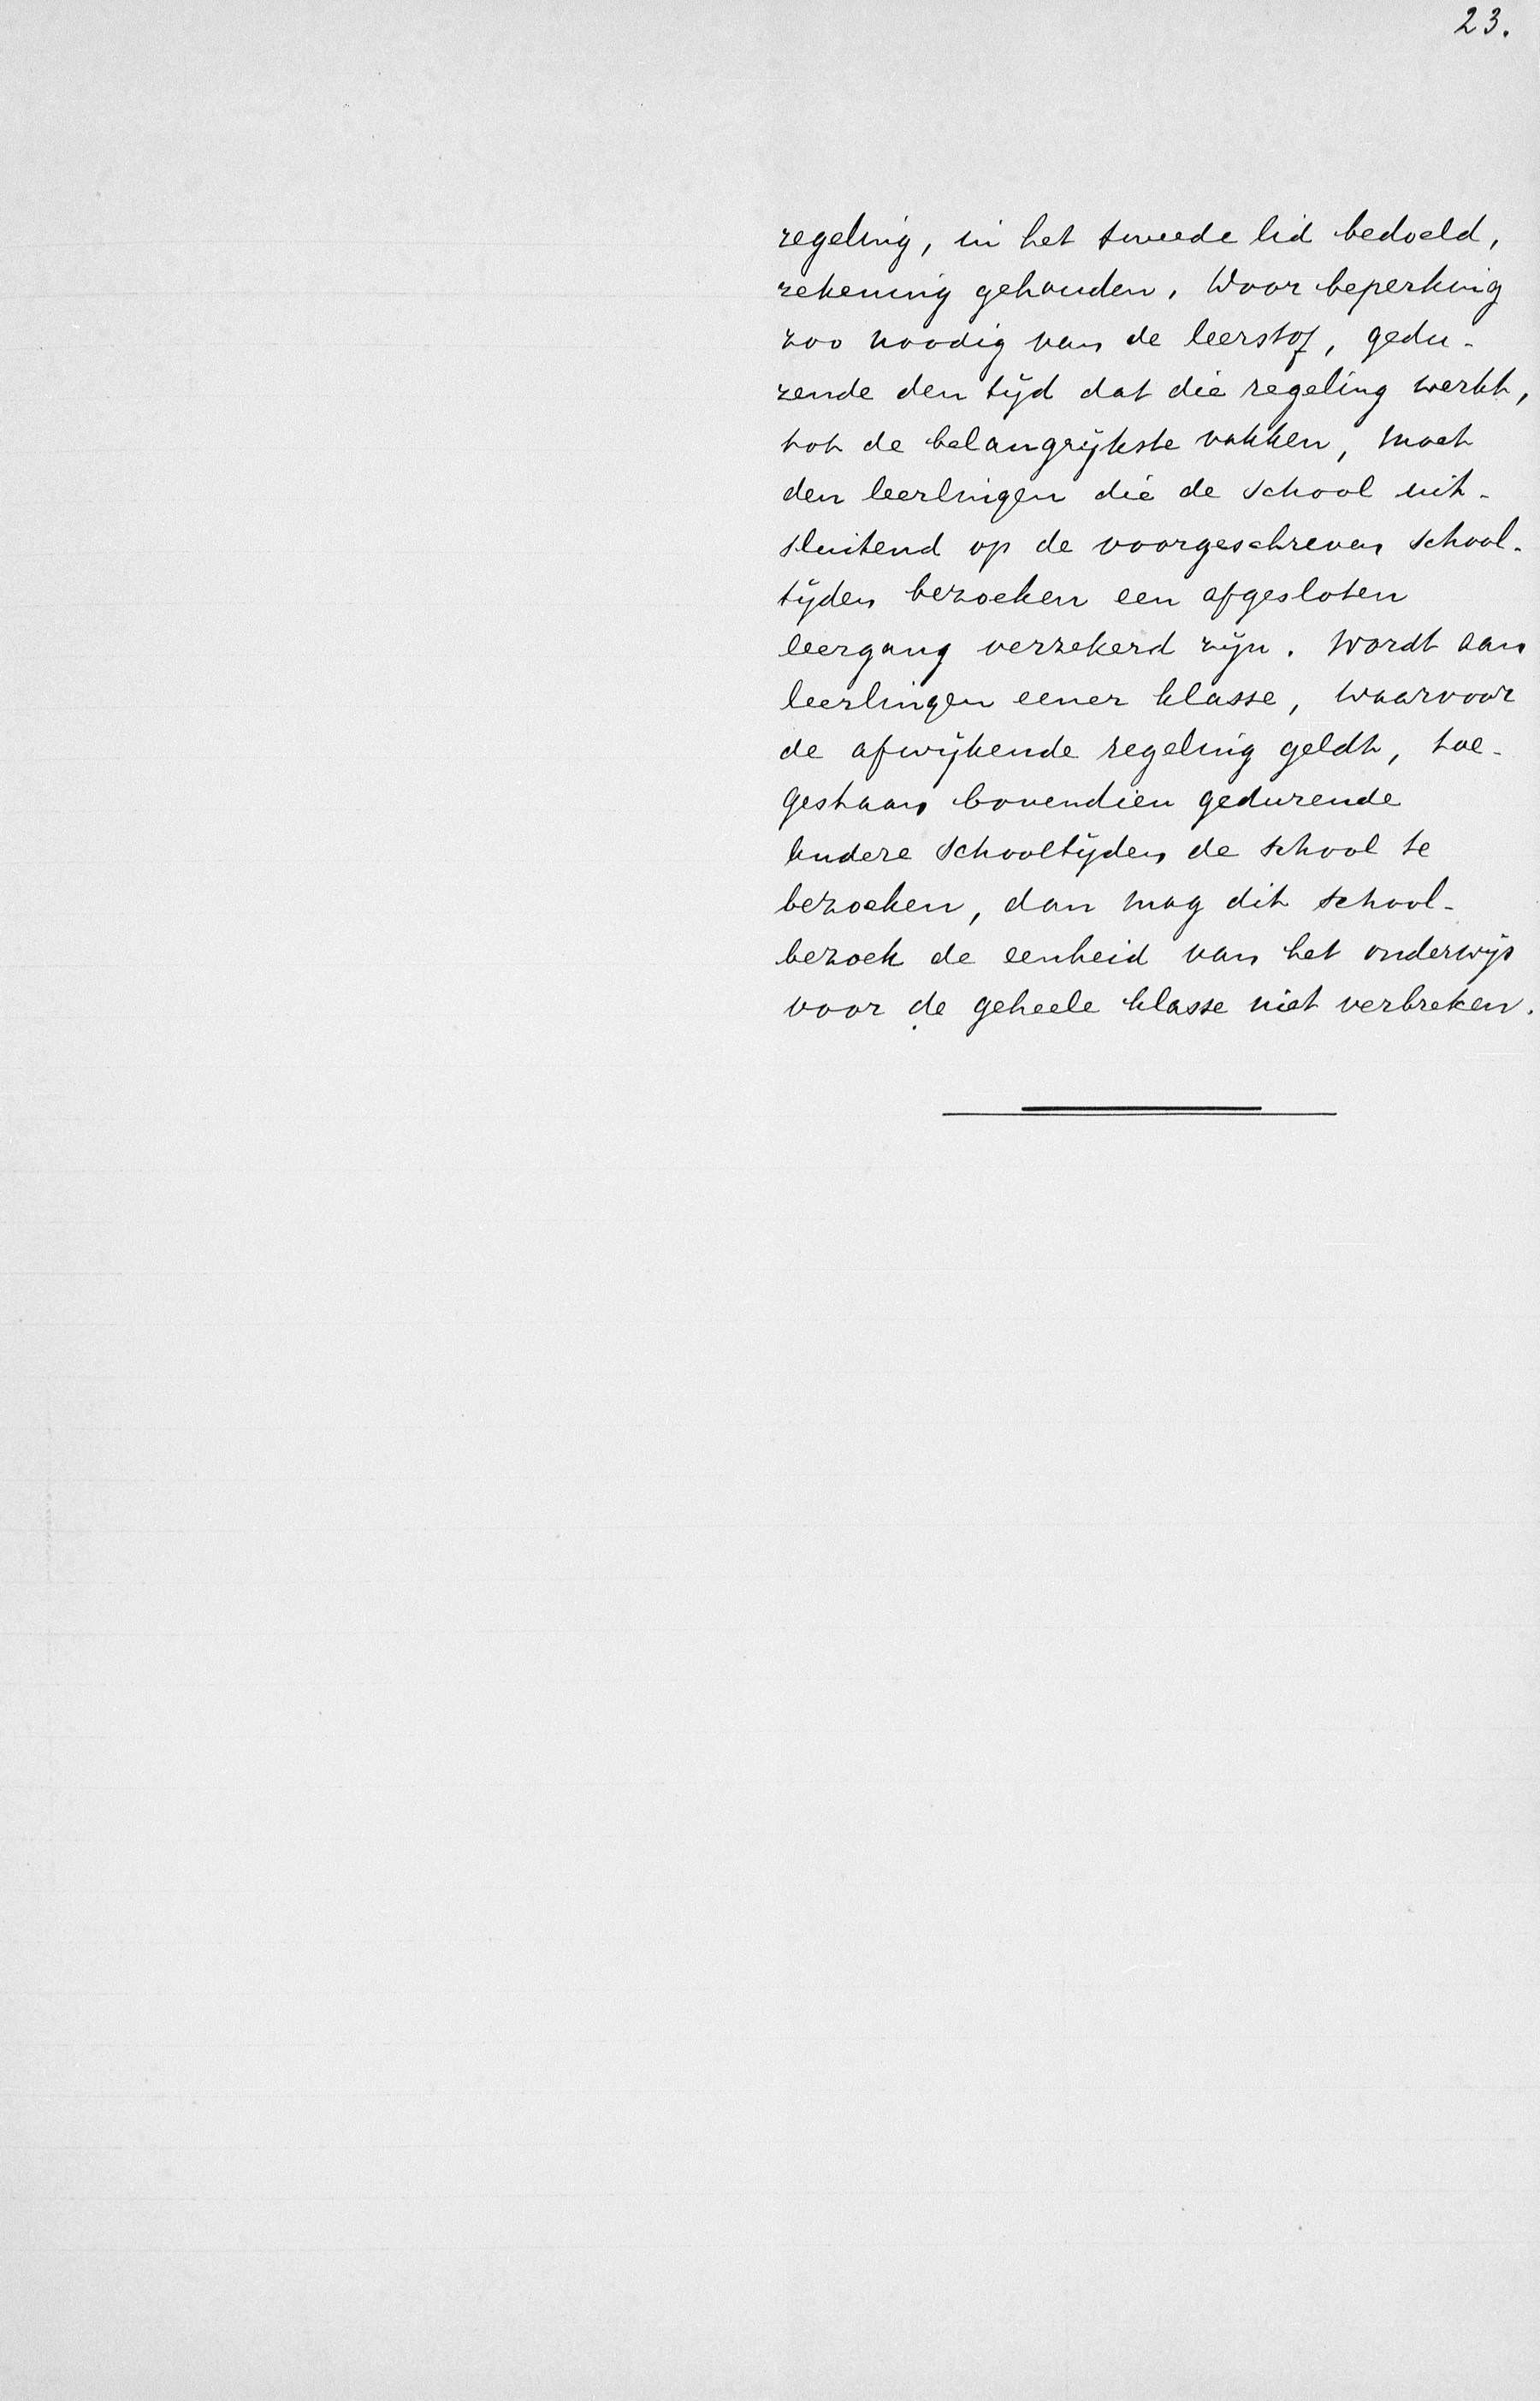 23.
regeling, in het tweede lid bedoeld,
rekening gehouden. Door beperking
zoo noodig van de leerstof, gedu-
rende den tijd dat die regeling werkt,
tot de belangrijkste vakken, moet
den leerlingen die de school uit-
sluitend op de voorgeschreven school-
tijden bezoeken een afgesloten
leergang verzekerd zijn. Wordt aan
leerlingen eener klasse, waarvoor
de afwijkende regeling geldt, toe-
gestaan bovendien gedurende
andere schooltijden de school te
bezoeken, dan mag dit school-
bezoek de eenheid van het onderwijs
voor de geheele klasse niet verbreken.